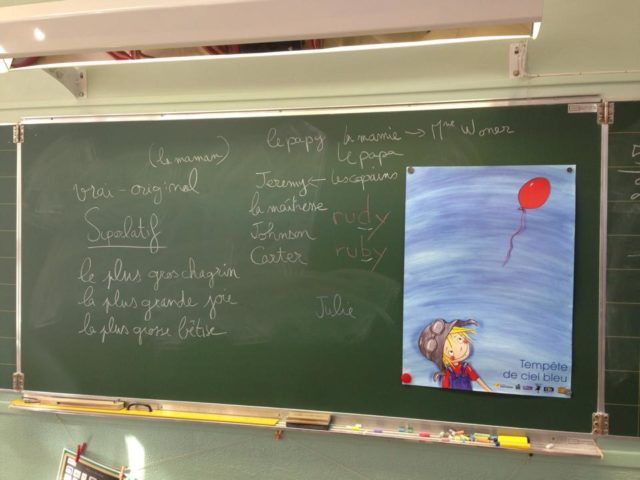 le papy la mamie → Mme Woner
le papa
(la maman)
Jeremy ← les copains
vrai - original
la maîtresse rudy
Superlatif
Johnson
Carter ruby
le plus gros chagrin
la plus grande joie
Julie
la plus grosse bêtise
Tempête
de ciel bleu